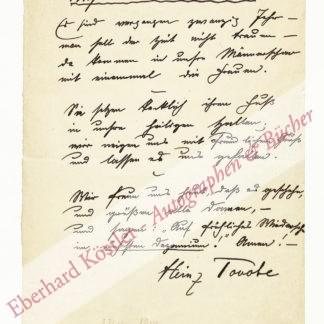 Es sind vergangen zwanzig Jahr –
man soll der Zeit nicht trauen –
da kamen in unsre Männerschar
mit einemmal die Frauen.
Sie setzen keck ihren Fuß
in unsre heiligen Hallen,
wir neigen uns mit
und lassen es uns gefallen.
Wir freun uns heut, daß es geschah,
und grüßen alle Damen, –
und sagen: „Auf fröhliches Wiedersehn
in Amen. –
Heinz Tovote
Eberhard Köstler Autographen & Bücher